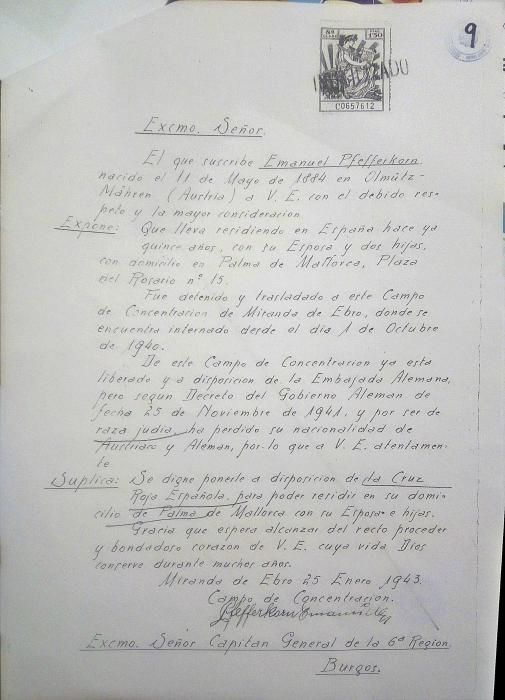 9
8ª CLASE
PTAS 1'50
INUTILIZADO
C0657612
Excmo. Señor.
El que suscribe Emanuel Pfefferkorn,
nacido el 11 de Mayo de 1884 en Olmütz-
Mähren (Austria) a V. E. con el debido res-
peto y la mayor consideracion
Expone: Que lleva residiendo en España hace ya
quince años, con su Esposa y dos hijas,
con domicilio en Palma de Mallorca, Plaza
del Rosario nº 15.
Fue detenido y trasladado a este Campo
de Concentracion de Miranda de Ebro, donde se
encuentra internado desde el dia 1 de Octubre
de 1940.
De este Campo de Concentracion ya esta
liberado y a disposicion de la Embajada Alemana,
pero segun Decreto del Gobierno Aleman de
fecha 25 de Noviembre de 1941, y por ser de
raza judia, ha perdido su nacionalidad de
Austriaco y Aleman, por lo que a V. E. atentamen-
te
Suplica: Se digne ponerle a disposicion de la Cruz
Roja Española, para poder residir en su domi-
cilio de Palma de Mallorca con su Esposa e hijas.
Gracia que espera alcanzar del recto proceder
y bondadoso corazon de V. E. cuya vida Dios
conserve durante muchos años.
Miranda de Ebro 25 Enero 1943.
Campo de Concentracion.
Pfefferkorn Emanuel
Excmo. Señor Capitan General de la 6ª Region.
Burgos.